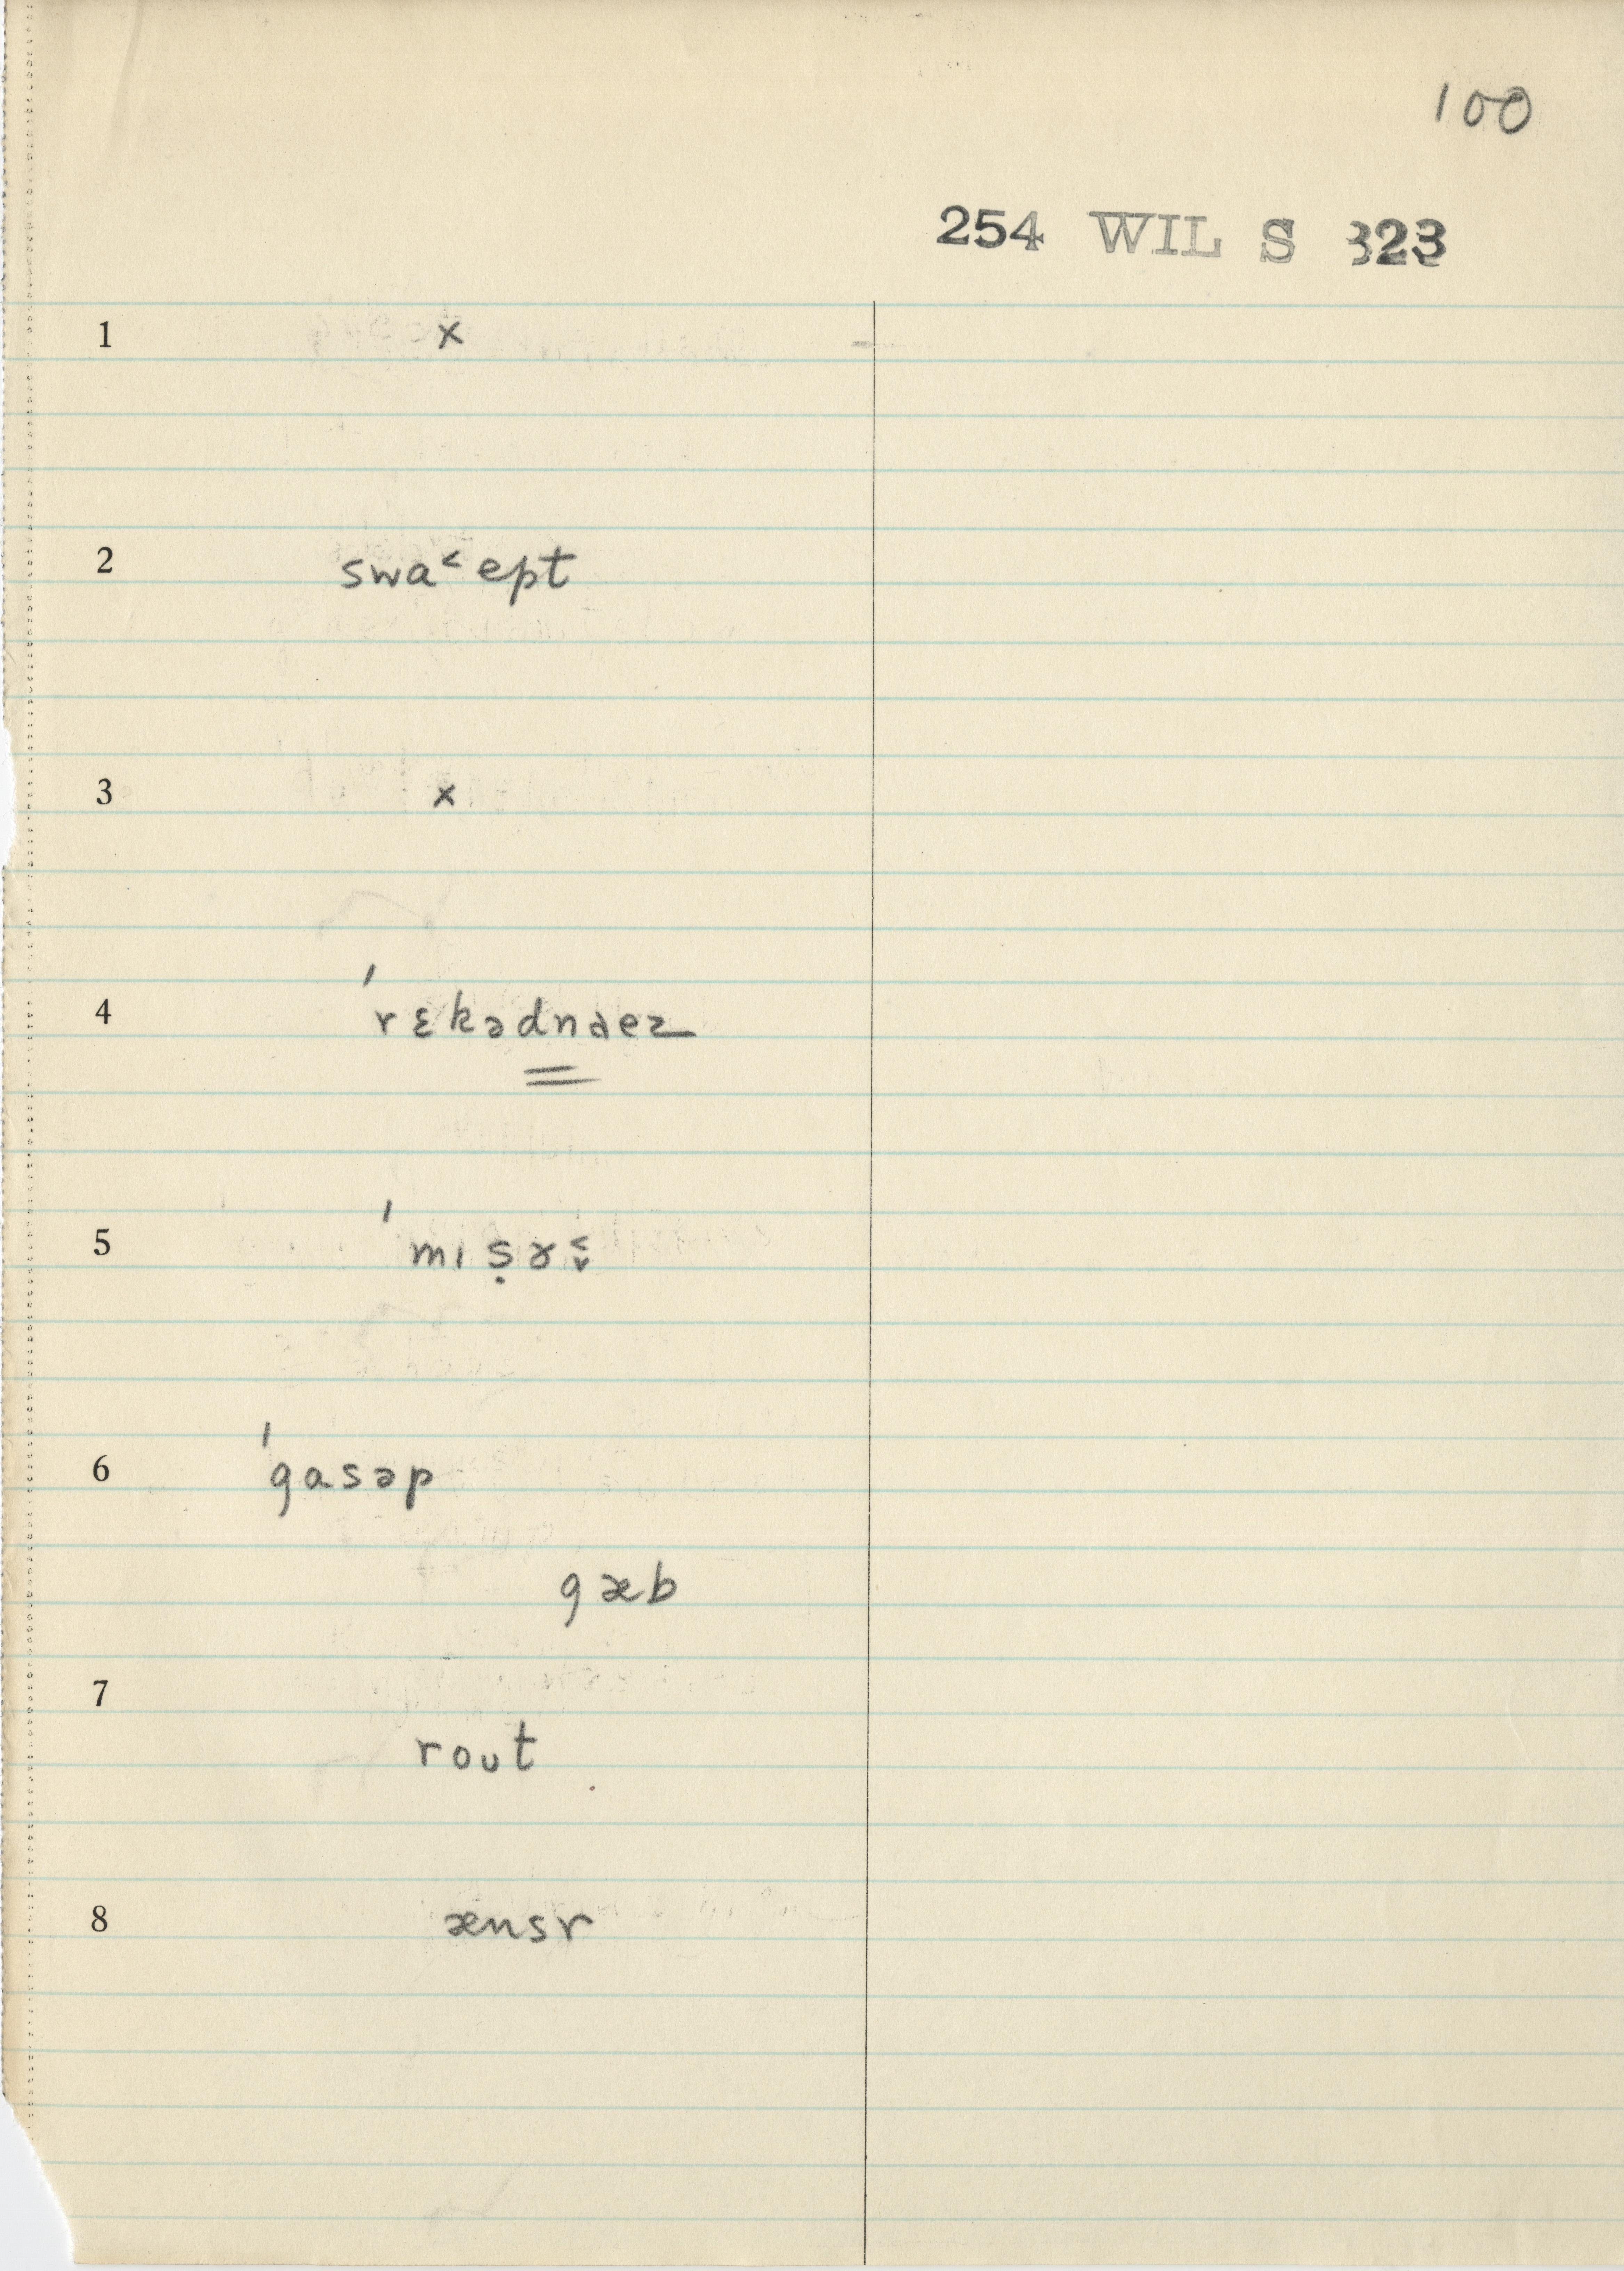 100
254 WIL S 323
1 x
2 swa˂ept
3 x
4 ˈrɛkədnaez
5 ˈmɪṣɤ˂̬
6 ˈgasəp
gæb
7
rout
8 ænsr